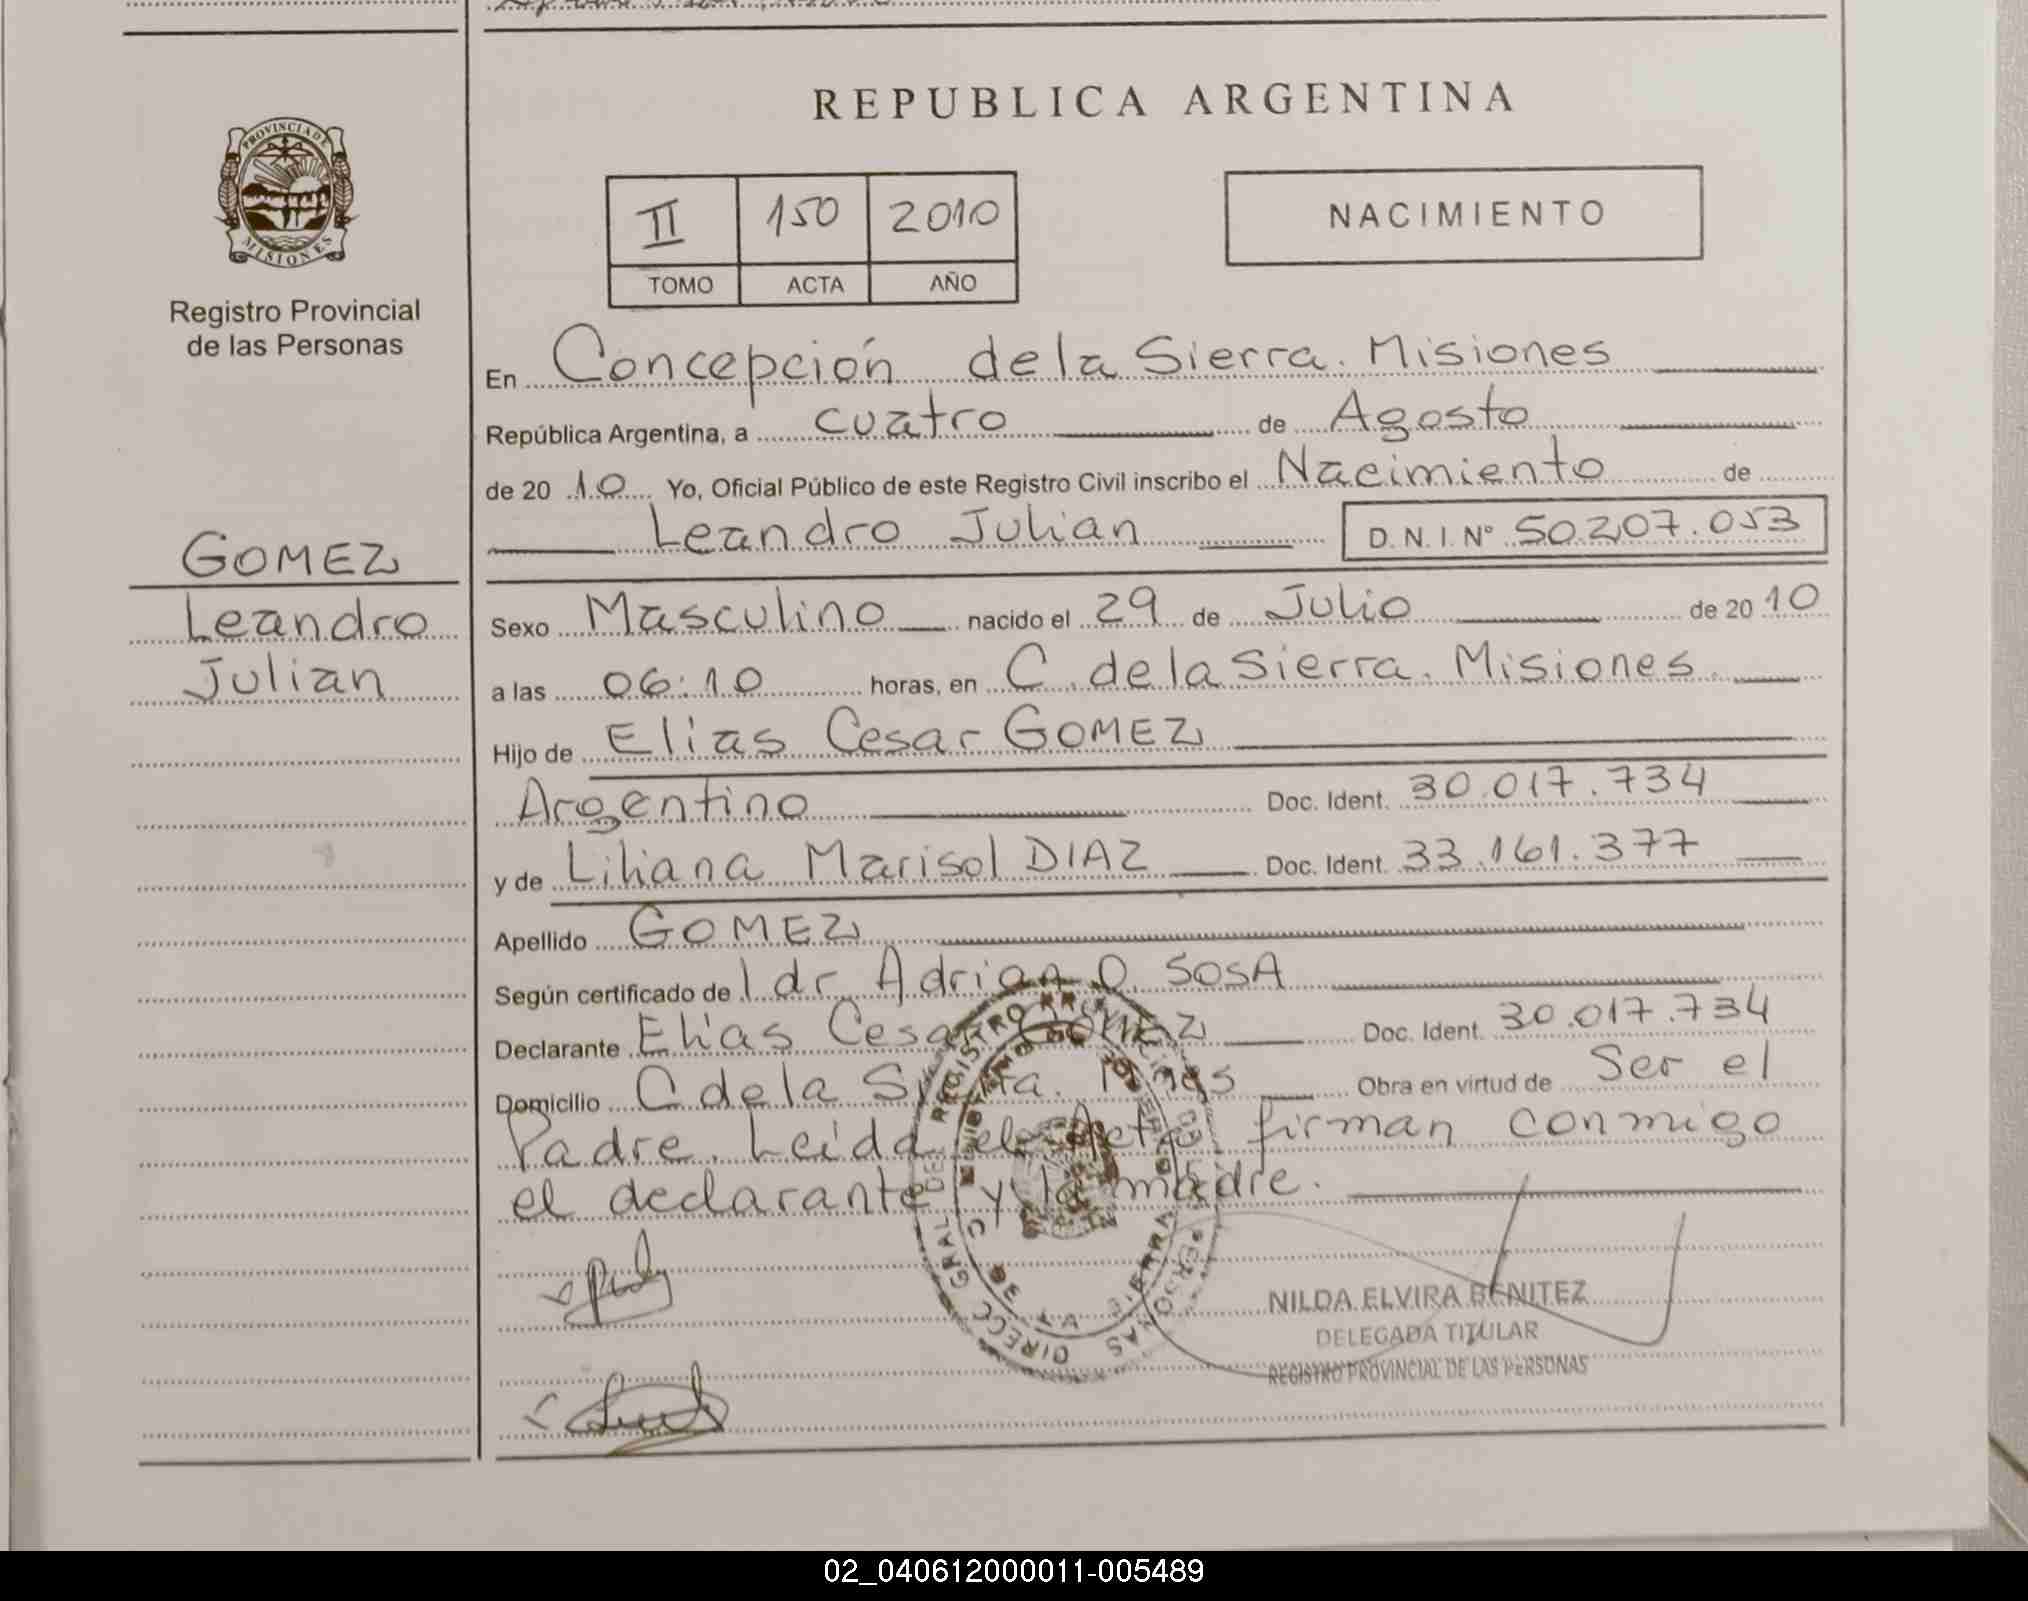 REPUBLICA ARGENTINA
PROVINCIA DE
MISIONES
Registro Provincial
de las Personas
II 150 2010
TOMO ACTA AÑO
NACIMIENTO
En Concepción de la Sierra. Misiones
República Argentina, a cuatro de Agosto
de 20 10 Yo, Oficial Público de este Registro Civil inscribo el Nacimiento de
Leandro Julian D.N.I.Nº 50.207.053
GOMEZ
Leandro
Julian
Sexo Masculino nacido el 29 de Julio de 20 10
a las 06:10 horas, en C. de la Sierra. Misiones.
Hijo de Elias Cesar GOMEZ
Argentino Doc. Ident. 30.017.734
y de Liliana Marisol DIAZ Doc. Ident. 33.161.377
Apellido GOMEZ
Según certificado de l dr. Adrian O. SOSA
Declarante Elias Cesar Gomez Doc. Ident. 30.017.734
Domicilio C de la Sierra. Mnes Obra en virtud de Ser el
Padre. Leida el Acta firman conmigo
el declarante y la madre.
NILDA ELVIRA BENITEZ
DELEGADA TITULAR
REGISTRO PROVINCIAL DE LAS PERSONAS
02_040612000011-005489